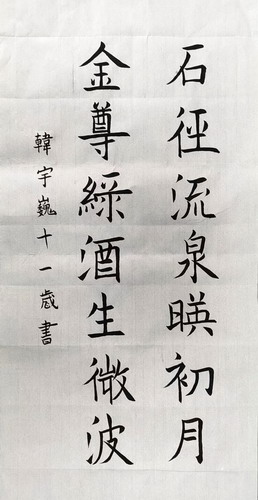 石徑流泉暎初月
金尊綵酒生微波
韓宇巍十一歲書